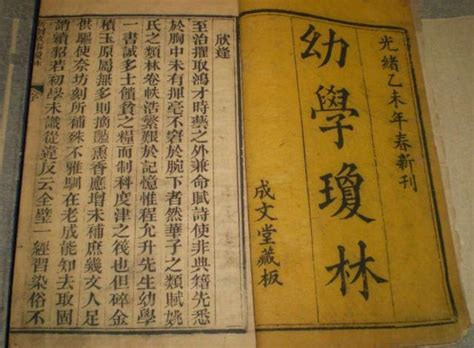 光緒乙未年春新刊
幼學瓊林
成文堂藏板
欣逢
至治擢取鴻才時藝之外兼命賦詩使非典籍先悉
於胸中未有揮毫不窘於腕下者然華子之類賦姚
氏之類林卷帙浩繁艱於記憶惟程允升先生幼學
一書誠多士饋貧之糧而制科度津之筏也但碎金
積玉原屬無多則摘豔薰香應增未補庶幾文人足
供驅使奈坊刻所補殊不雅馴在老成能知去取固
誚續貂若初學未識從違反云全璧一經習染俗不